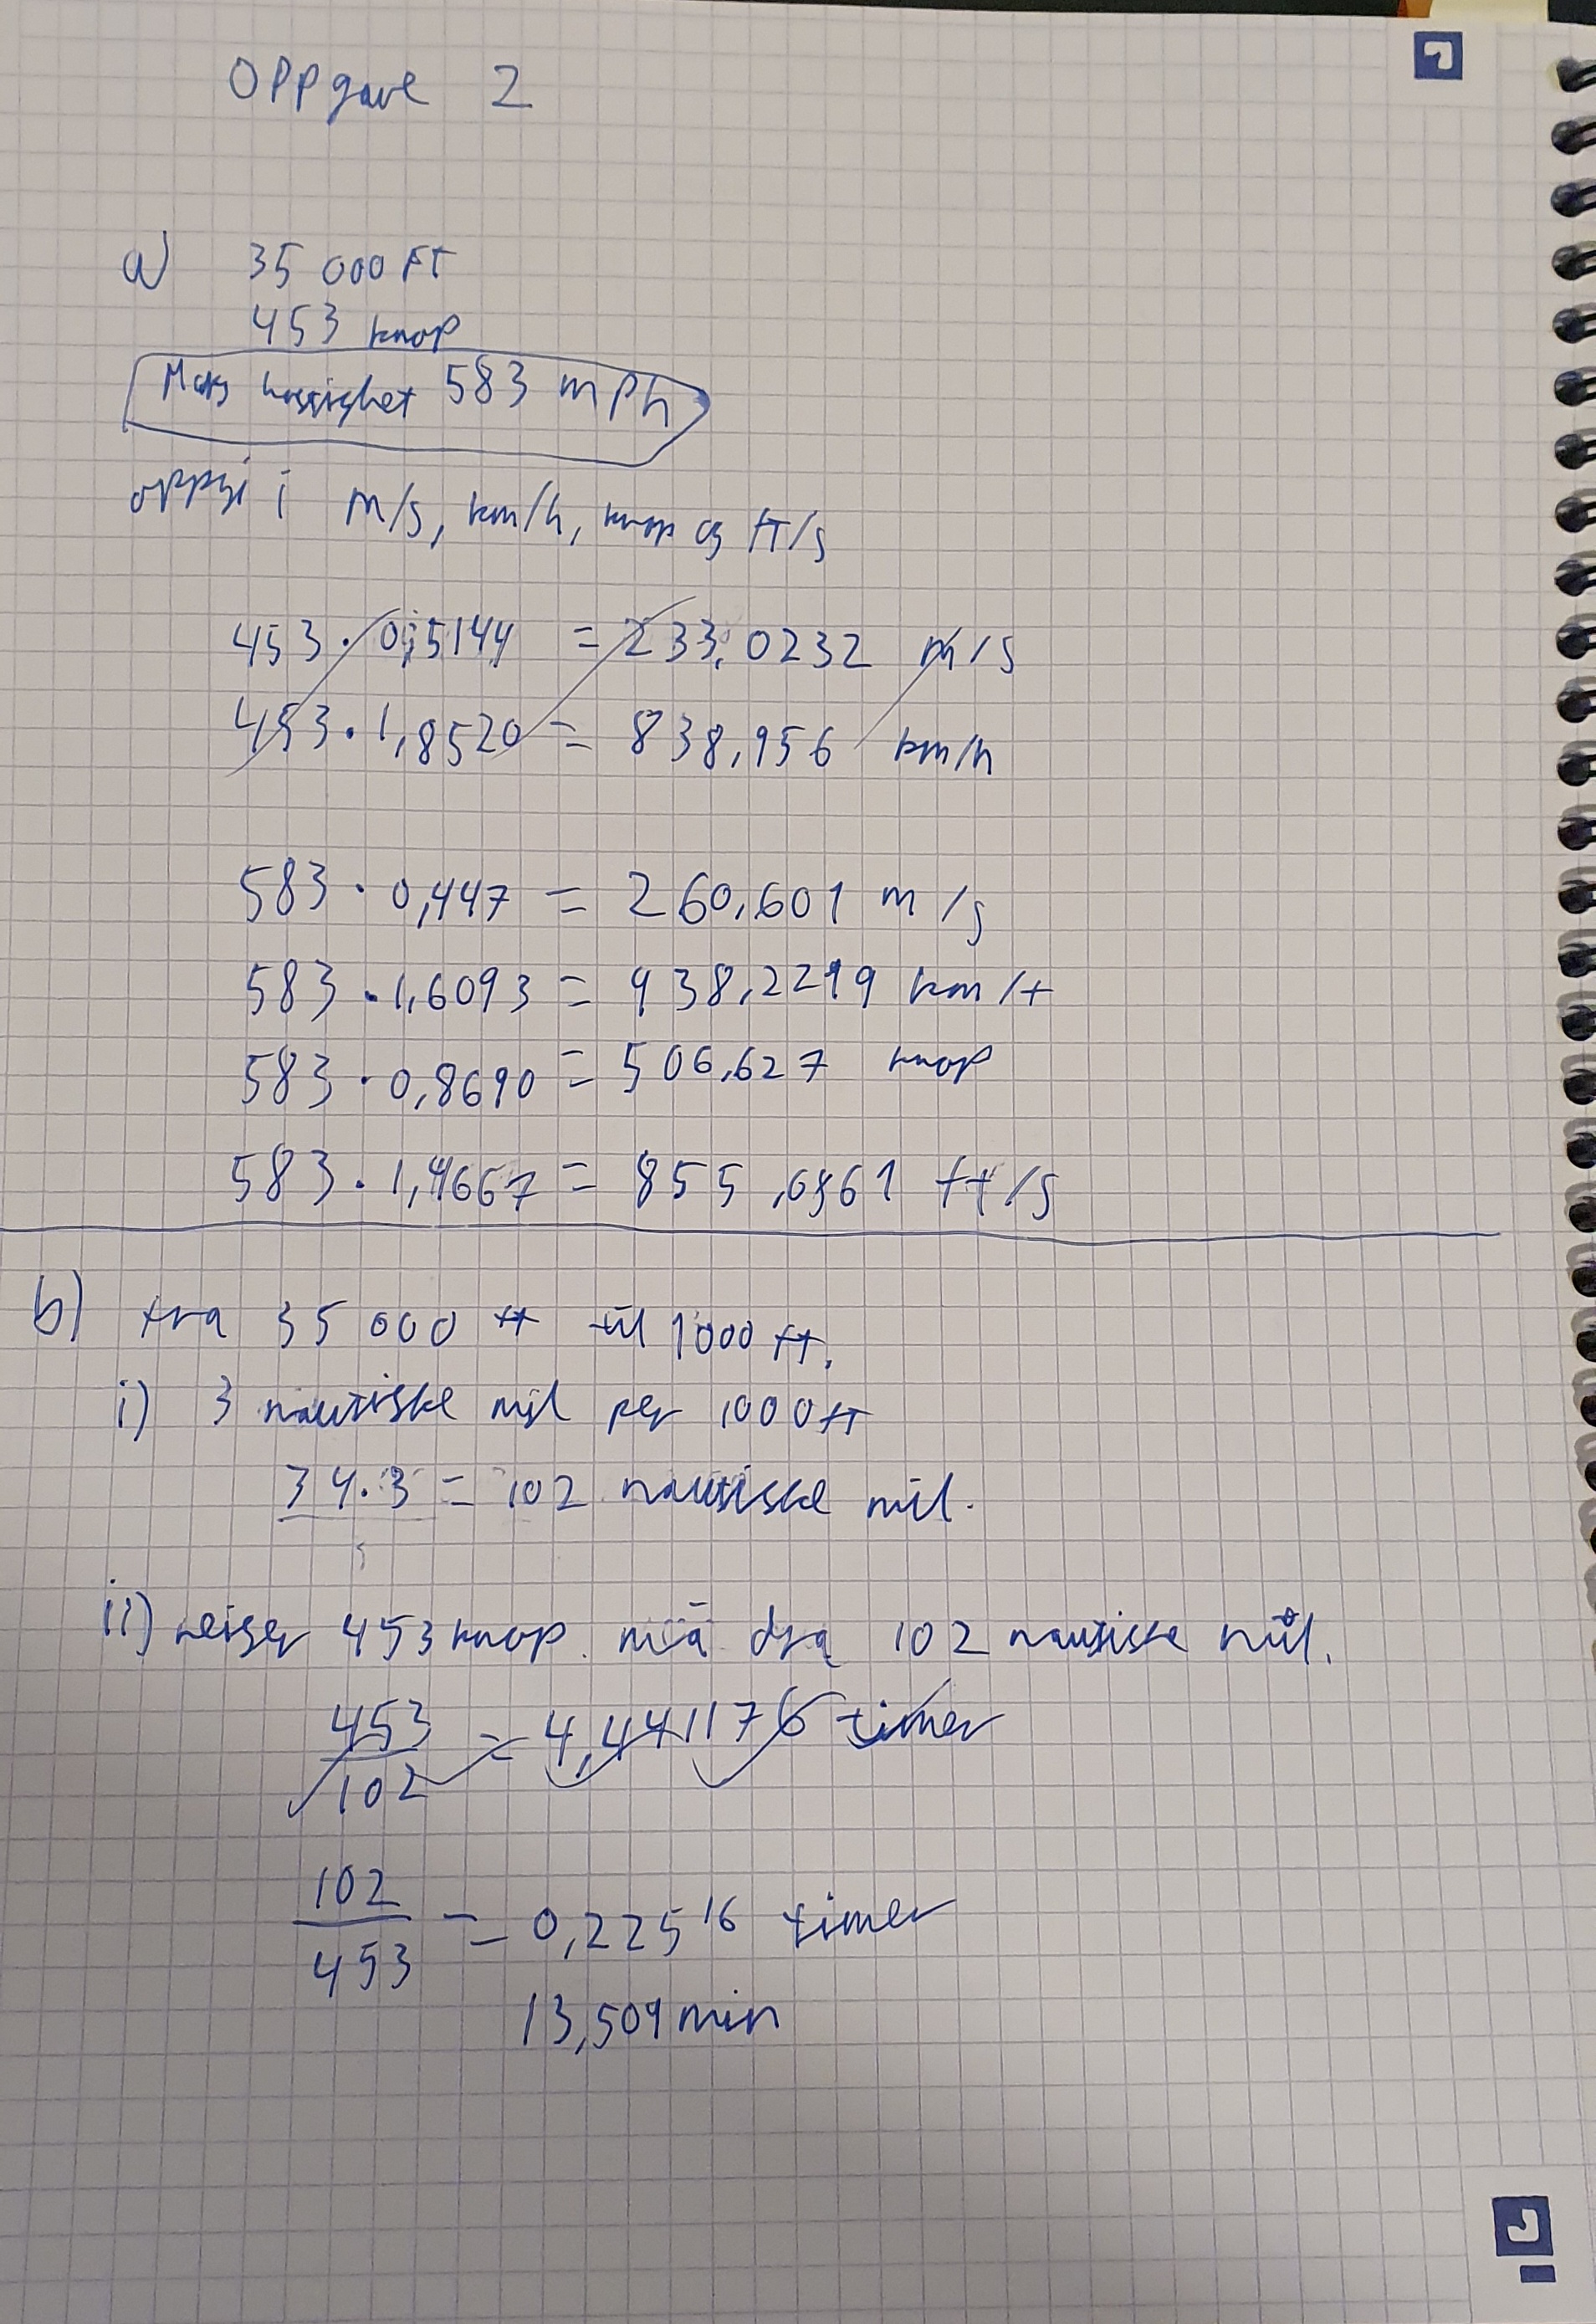 Oppgave 2
a) 35 000 FT
453 knop
Maks hastighet 583 mph
oppgi i m/s, km/h, knop og ft/s
453 · 0,5144 = 233,0232 m/s
453 · 1,8520 = 838,956 km/h
583 · 0,447 = 260,601 m/s
583 · 1,6093 = 938,2219 km/t
583 · 0,8690 = 506,627 knop
583 · 1,4667 = 855,0861 ft/s
b) fra 35 000 ft til 1000 ft.
i) 3 nautiske mil per 1000 ft
34 · 3 = 102 nautiske mil.
ii) reiser 453 knop. må dra 102 nautiske mil.
453/102 = 4,441176 timer
102/453 = 0,22516 timer
13,509 min